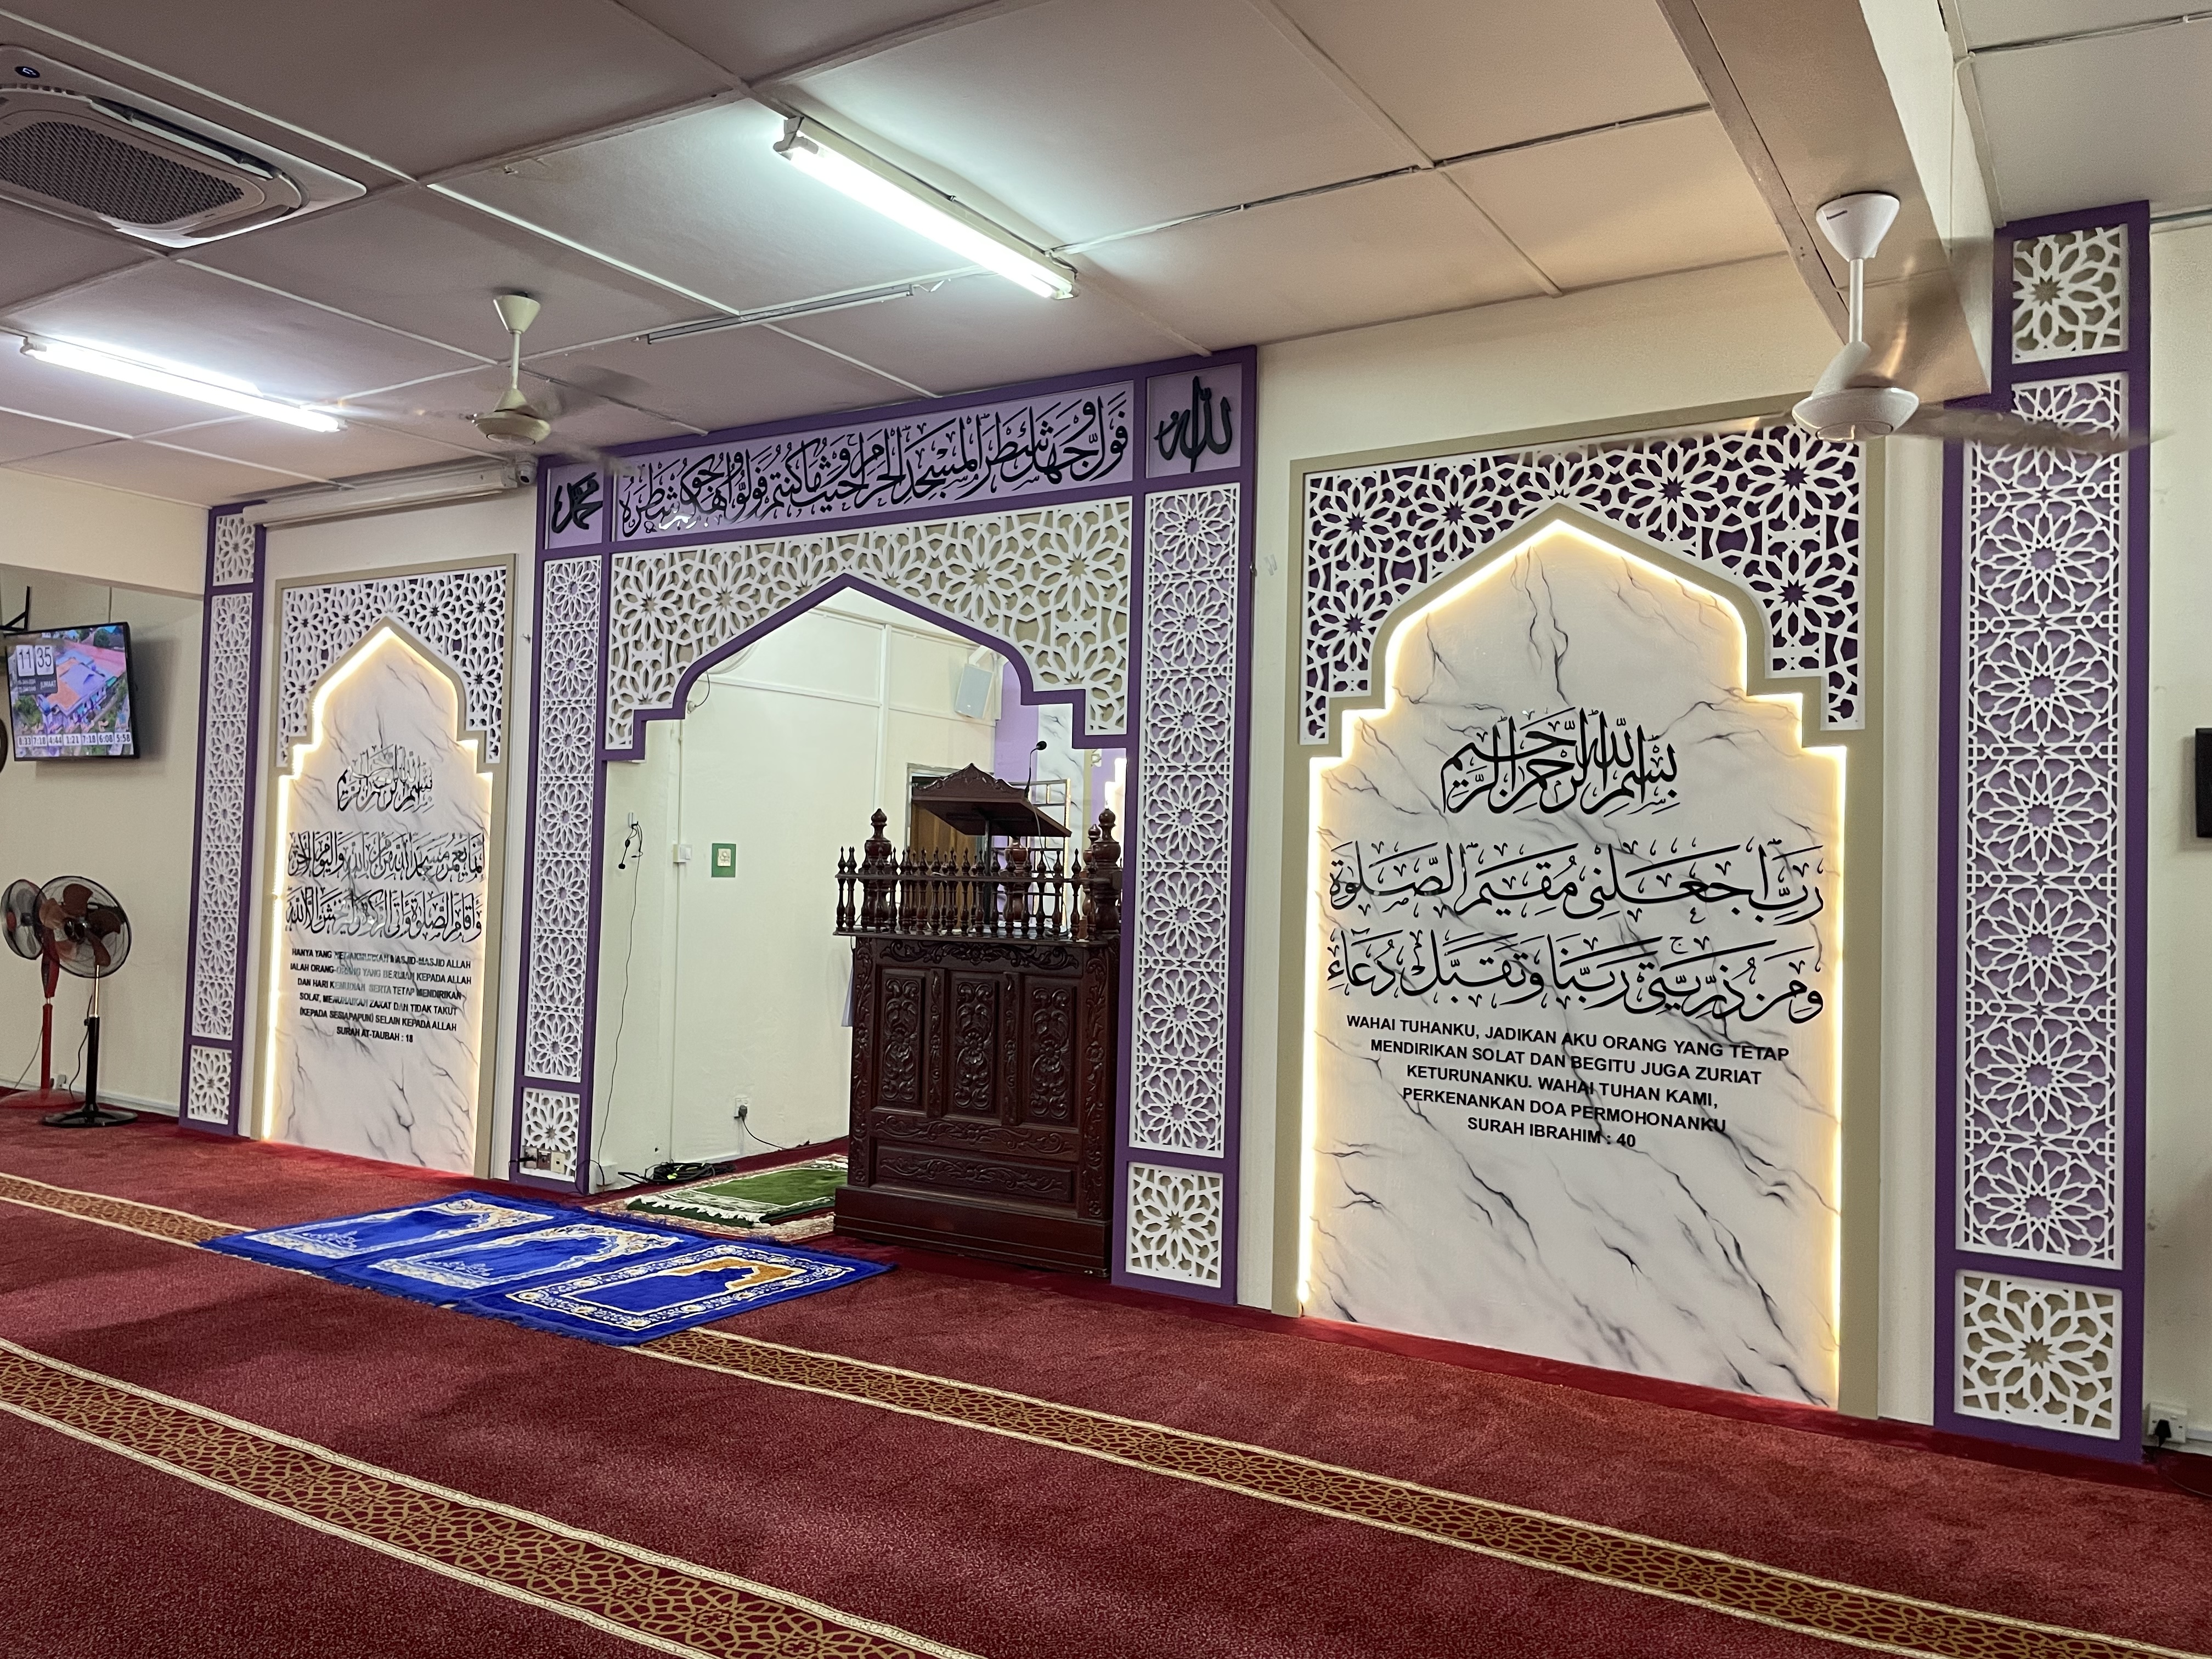 محمد
فول وجهك شطر المسجد الحرام وحيث ما كنتم فولوا وجوهكم شطره
الله
11 35
JUMAAT
7:18 4:44 1:21 7:18 6:08 5:58
بسم الله الرحمن الرحيم
إنما يعمر مساجد الله من آمن بالله واليوم الآخر
وأقام الصلوة وآتى الزكوة ولم يخش إلا الله
HANYA YANG MEMAKMURKAN MASJID-MASJID ALLAH
IALAH ORANG-ORANG YANG BERIMAN KEPADA ALLAH
DAN HARI KEMUDIAN SERTA TETAP MENDIRIKAN
SOLAT, MENUNAIKAN ZAKAT DAN TIDAK TAKUT
(KEPADA SESIAPAPUN) SELAIN KEPADA ALLAH
SURAH AT-TAUBAH : 18
بِسْمِ اللهِ الرَّحْمٰنِ الرَّحِيْمِ
رَبِّ اجْعَلْنِى مُقِيْمَ الصَّلٰوةِ
وَمِنْ ذُرِّيَّتِىْ رَبَّنَا وَتَقَبَّلْ دُعَاءِ
WAHAI TUHANKU, JADIKAN AKU ORANG YANG TETAP
MENDIRIKAN SOLAT DAN BEGITU JUGA ZURIAT
KETURUNANKU. WAHAI TUHAN KAMI,
PERKENANKAN DOA PERMOHONANKU
SURAH IBRAHIM : 40